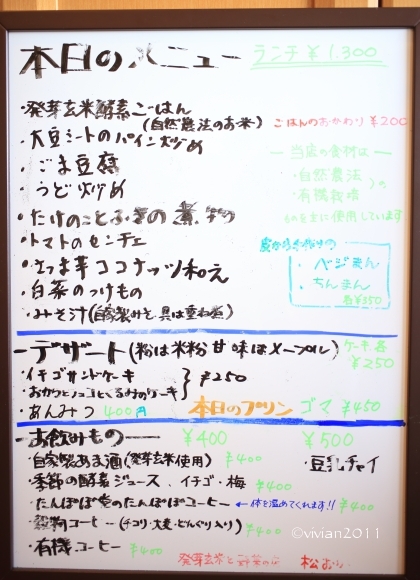 本日のメニュー ランチ¥1.300
・発芽玄米酵素ごはん
(自然農法のお米) ごはんのおかわり ¥200
・大豆ミートのパイン炒め
・ごま豆腐
・うど炒め
・たけのことふきの煮物
・トマトのセンチェ
・さつま芋ココナッツ和え
・白菜のつけもの
・みそ汁(自家製みそ、具は重ね煮)
― 当店の食材は ―
・自然農法
・有機栽培 の
ものを主に使用しています
・ベジまん
・ちんまん
各¥350
デザート(粉は米粉 甘味はメープル) ケーキ 各¥250
・イチゴサンドケーキ
・おからとココとくるみのケーキ ¥250
・あんみつ 400円 本日のプリン ゴマ ¥450
お飲みもの ¥400 ¥500
・自家製あま酒(発芽玄米使用) ¥400 ・豆乳チャイ
・季節の酵素ジュース、イチゴ・梅 ¥400
・たんぽぽ堂のたんぽぽコーヒー ←体を温めてくれます!! ¥400
・穀物コーヒー(チコリ・大麦・どんぐり入り) ¥400
・有機コーヒー ¥400
発芽玄米と野菜の
©vivian2011